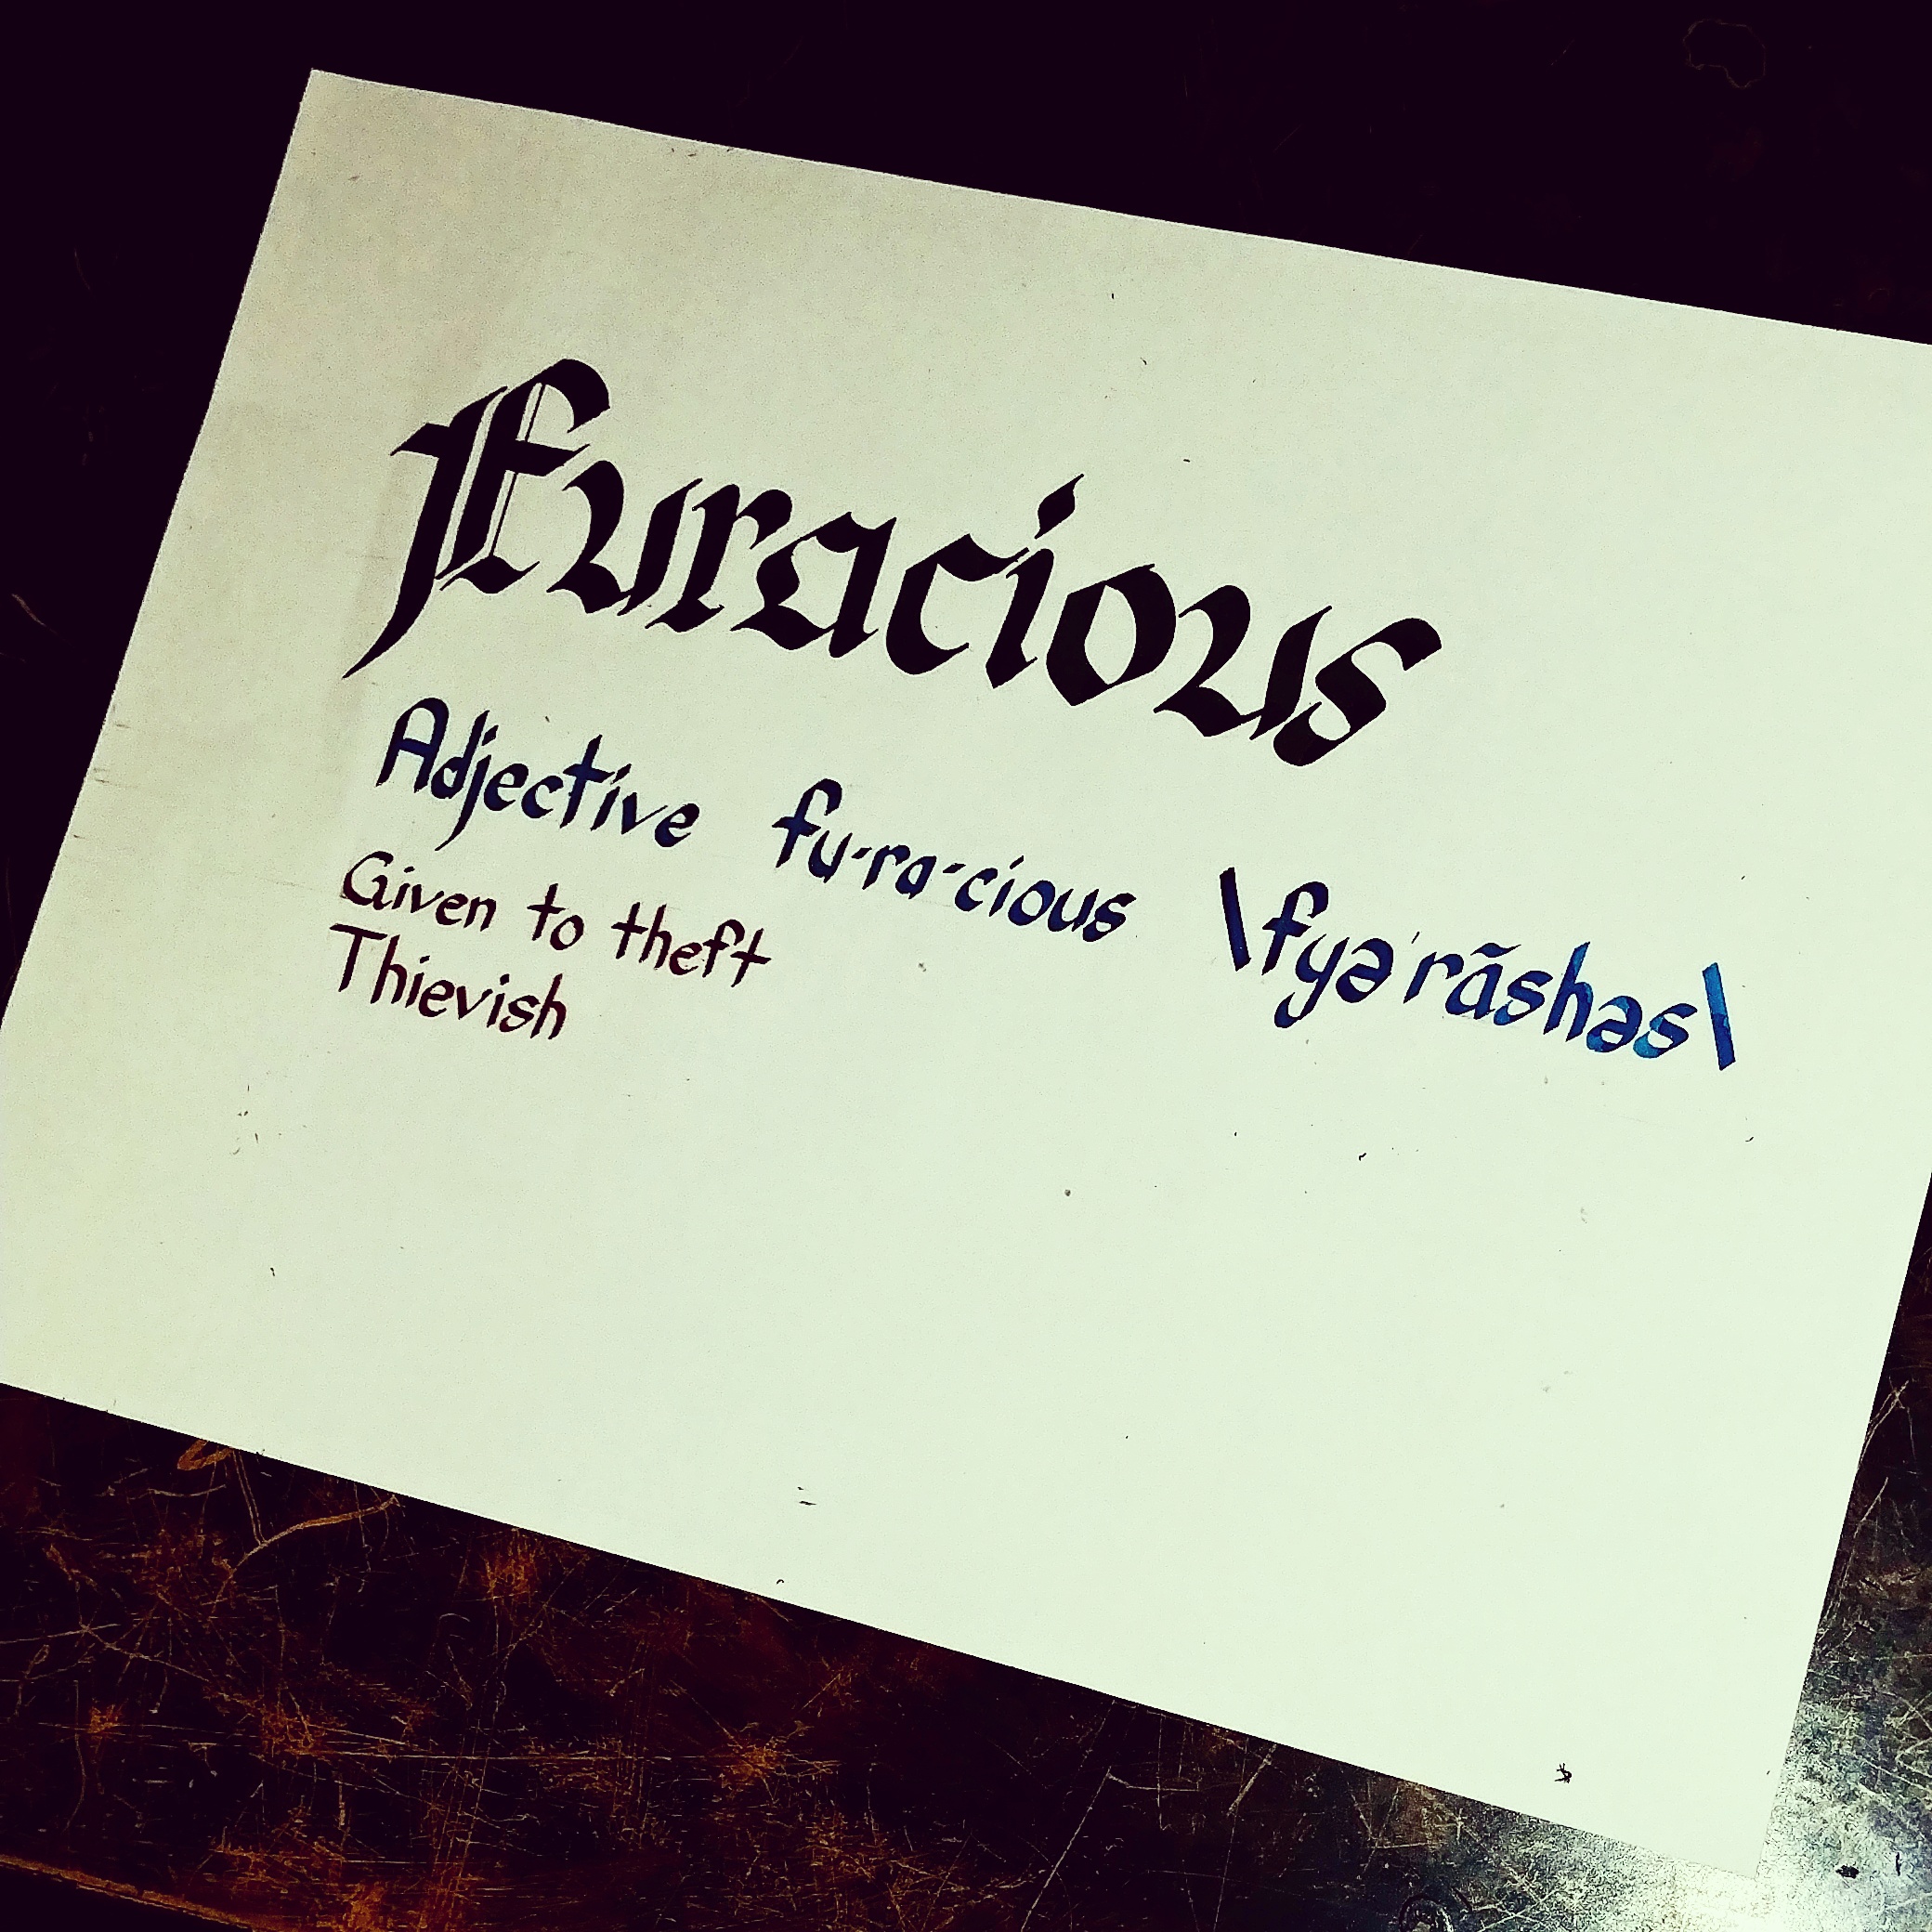 Furacious
Adjective fu-ra-cious \fyə'rãshəs\
Given to theft
Thievish